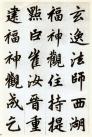 玄逸法师西湖
福神觀住持提
點白雀汝晋重
建福神觀成乞